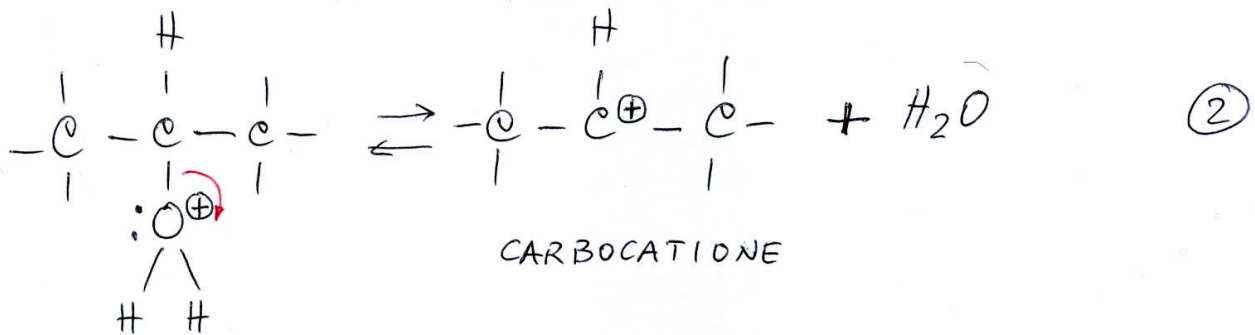 H H
— C — C — C — ⇌ — C — C⊕ — C — + H₂O ②
:O⊕
H H
CARBOCATIONE